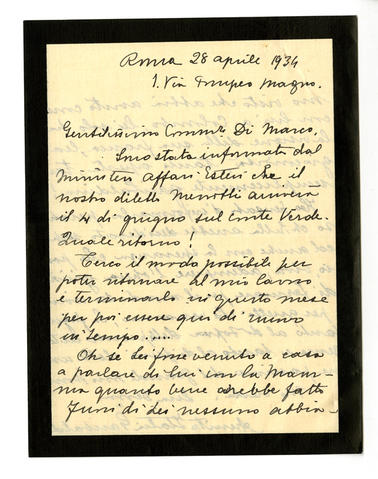 Roma 28 aprile 1934
1. Via Pompeo Magno.
Gentilissimo Comm.r Di Marco,
Sono stata informata dal
Ministero Affari Esteri che il
nostro diletto Menotti arriverà
il 4 di giugno sul Conte Verde.
Quale ritorno!
Cerco il modo possibile per
poter ritornare al mio lavoro
e terminarlo in questo mese
per poi essere qui di nuovo
in tempo.....
Oh se Lei fosse venuto a casa
a parlare di lui con la Mam-
ma quanto bene avrebbe fatto
Fuori di dei nessuno abbia-